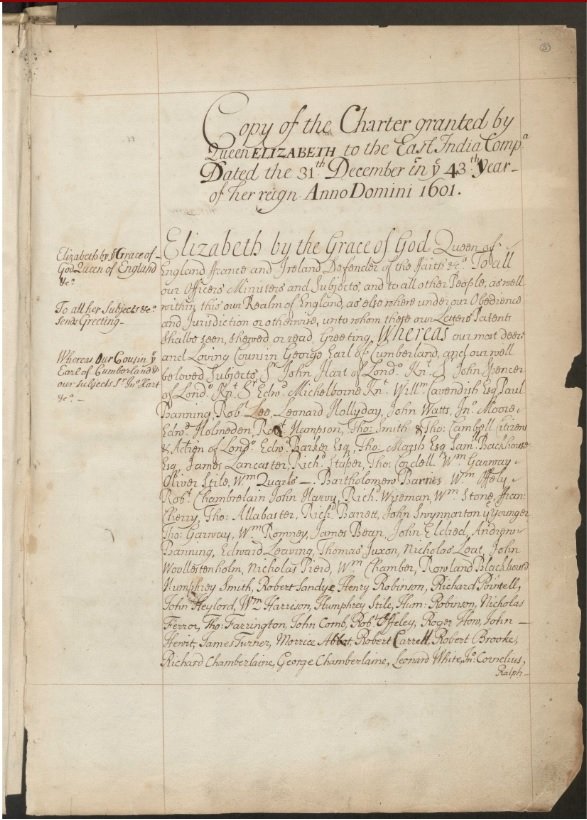 Copy of the Charter granted by
Queen ELIZABETH to the East India Compª
Dated the 31th December in ẙ 43th Year
of her reign Anno Domini 1601.
Elizabeth by ẙ Grace of
God Queen of England
&cª
To all her Subjects &cª
Sends Greeting
Whereas our Cousin ẙ
Earl of Cumberland &
our subjects Sr. Jnº. Hart
&cª
Elizabeth by the Grace of God Queen of
England France and Ireland Defender of the Faith &cª. To all
our Officers Ministers and Subjects, and to all other People, as well
within this our Realm of England, as elsewhere under our Obedience
and Jurisdiction or otherwise, unto whom these our Letters Patents
shall be seen, shewed or read Greeting. Whereas our most deer
and Loving Cousin George Earl of Cumberland, and our well
beloved Subjects Sr. John Hart of Londº. Knt. Sr. John Spencer
of Londº. Knt. Sr. Edwd. Michelborne Knt. Willm. Cavendish Esq Paul
Banning, Robt. Lee Leonard Hollyday, John Watts, Jnº. Moore,
Edwd. Holmeden, Robt. Hampson, Tho: Smith & Tho: Cambell Citizens
& of Londº. Edwd. Barker Esq. Tho: Marsh Esq. Saml. Backhouse
Esq. James Lancaster, Richd. Staper, Tho: Cordell. Wm. Garway
Oliver Stile, Wm. Quarles Bartholomew Barnes Wm. Offely
Robt. Chamberlain John Harvy, Rich. Wiseman, Wm. Stone, Fran:
Cherry, Tho: Allabaster, Richd. Barrett, John Swynnarton ẙ Younger
Tho: Garway, Wm. Romney, James Dean, John Eldred, Andrew
Banning, Edward Leaving, Thomas Juxon, Nicholas Leat, John
Woollestenholm, Nicholas Pierd, Wm. Chamber, Rowland Blackhouse
Humphrey Smith, Robert Sandye Henry Robinson, Richard Pointell,
John Heylord, Wm. Harrison, Humphrey Stile, Hum: Robinson, Nicholas
Ferror, Tho: Farrington, John Comb, Robt. Offeley, Roger How, John
Hewit, James Turner, Morrice Abbot, Robert Carrell, Robert Brooke,
Richard Chamberlaine, George Chamberlaine, Leonard White, Jº: Cornelius,
Ralph